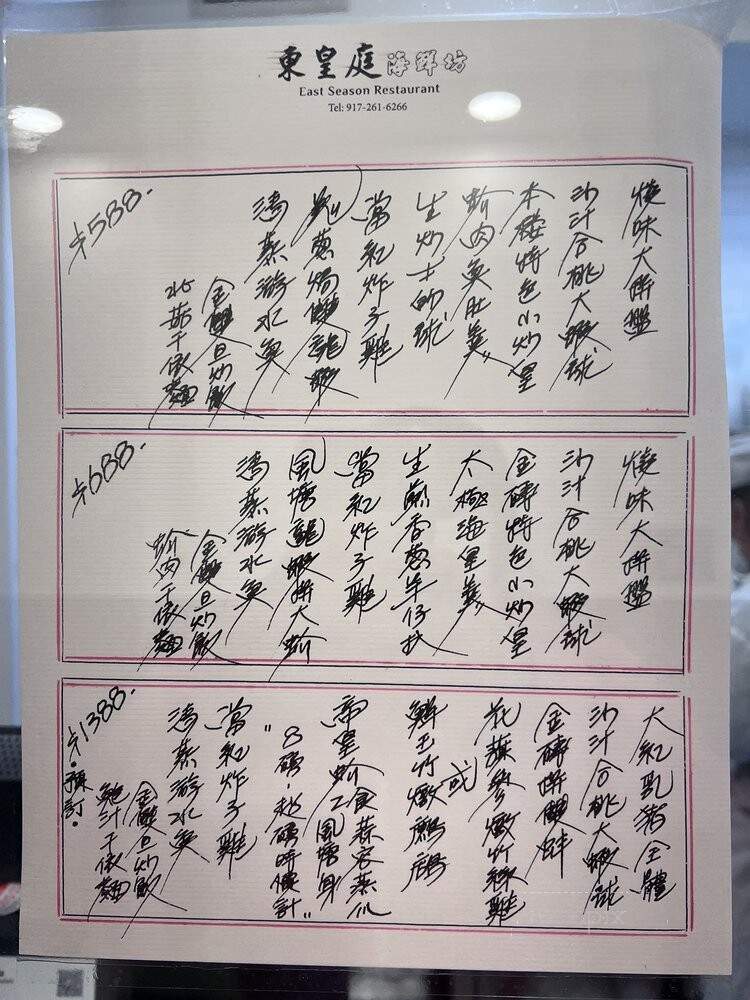 東皇庭海鮮坊
East Season Restaurant
Tel: 917-261-6266
燒味大拼盤
沙汁合桃大蝦球
本樓特色小炒皇
蚧肉魚肚羹
生炒士的球
當紅炸子雞
薑蔥焗雙龍蝦
清蒸游水魚
金銀旦炒飯
北菇干燒麵
$588.
燒味大拼盤
沙汁合桃大蝦球
金磚特色小炒皇
太極海皇羹
生煎香蔥牛仔扒
當紅炸子雞
風塘龍蝦拼大蚧
清蒸游水魚
金銀旦炒飯
蚧肉干燒麵
$688.
大紅乳豬全體
沙汁合桃大蝦球
金磚拼雙蚌
花旗參燉竹絲雞
或
鮮玉竹燉鷓鴣
帝皇蚧二食蒜蓉蒸爪
風塘身
"8磅·超磅時價計"
當紅炸子雞
清蒸游水魚
金銀旦炒飯
鮑汁干燒麵
$1388.
·預訂·